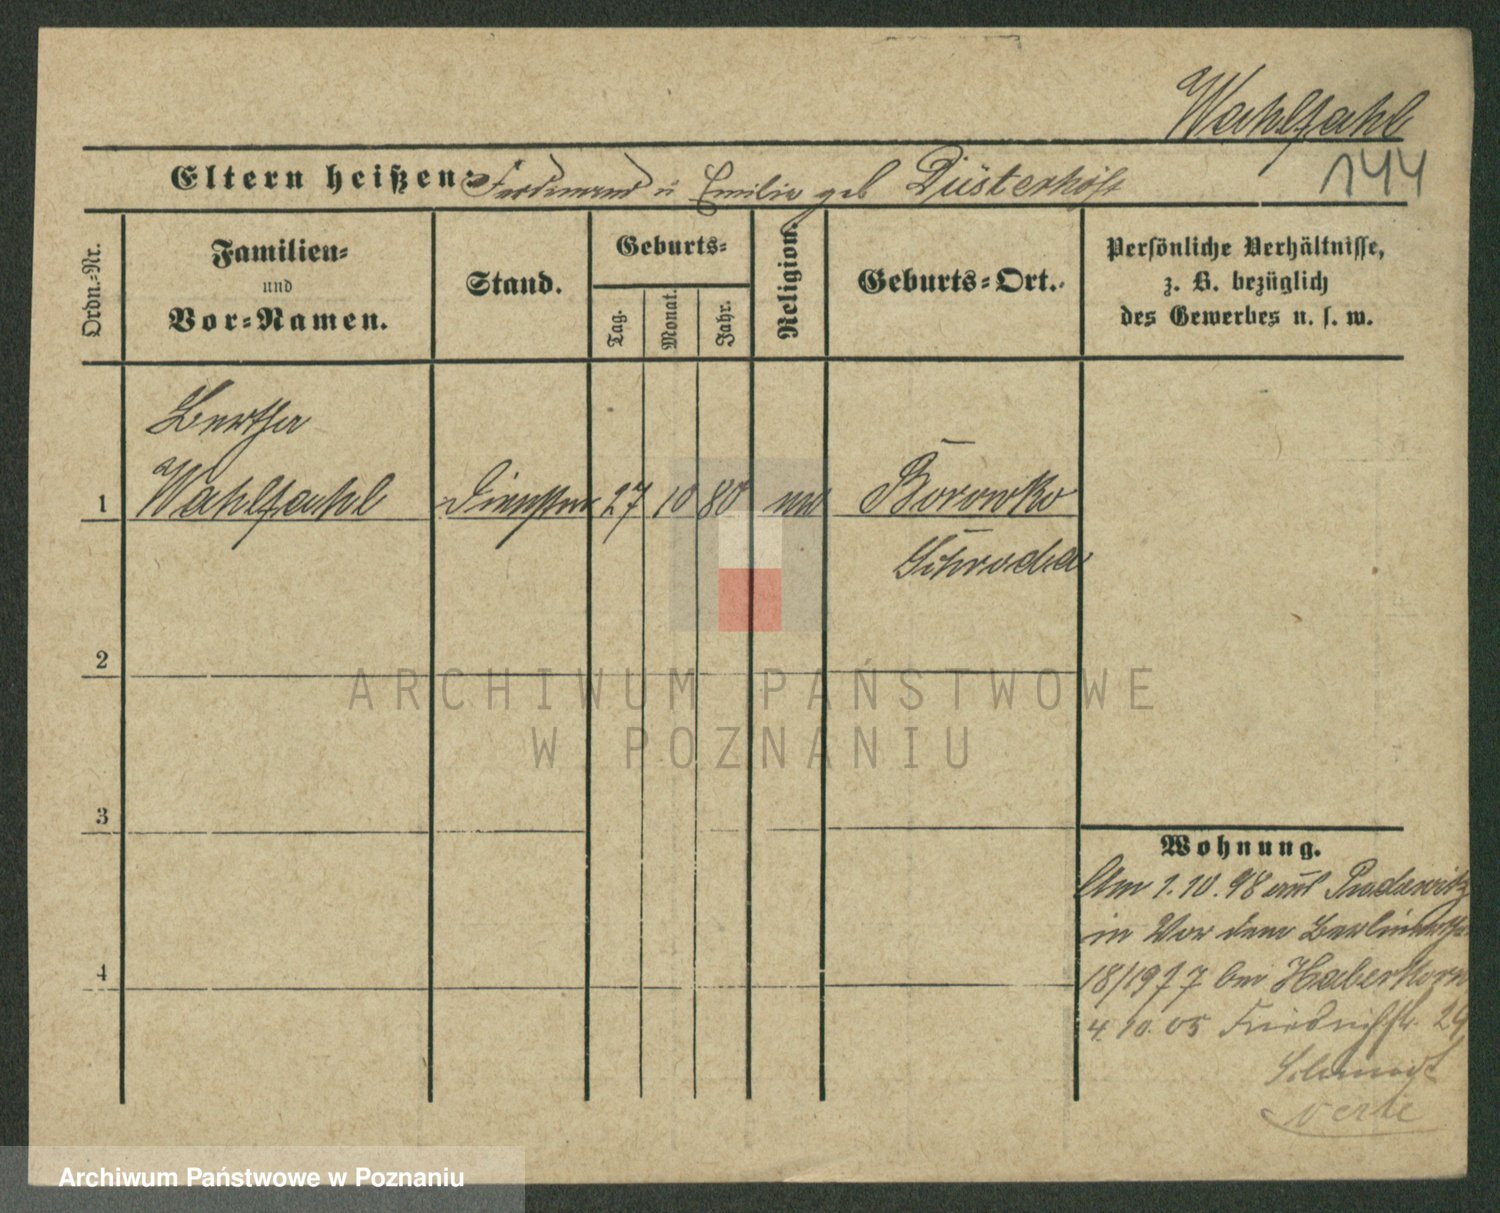 Wahlfahl
144
Eltern heißen: Ferdinand u Emilie geb Düsterhöft
Ordn.-Nr.
Familien-
und
Vor-Namen.
Stand.
Geburts-
Tag.
Monat.
Jahr.
Religion.
Geburts-Ort.
Persönliche Verhältnisse,
z. B. bezüglich
des Gewerbes u. s. w.
Bertha
1 Wahlfahl 27 10 80 Borowko
Schroda
2
3
4
Wohnung.
Am 1.10.98 aus Pudewitz
in Vor dem Berlinerthor
18/19 bei Haberkorn
4.10.05 Friedrichstr. 29
ARCHIWUM PAŃSTWOWE
W POZNANIU
Archiwum Państwowe w Poznaniu